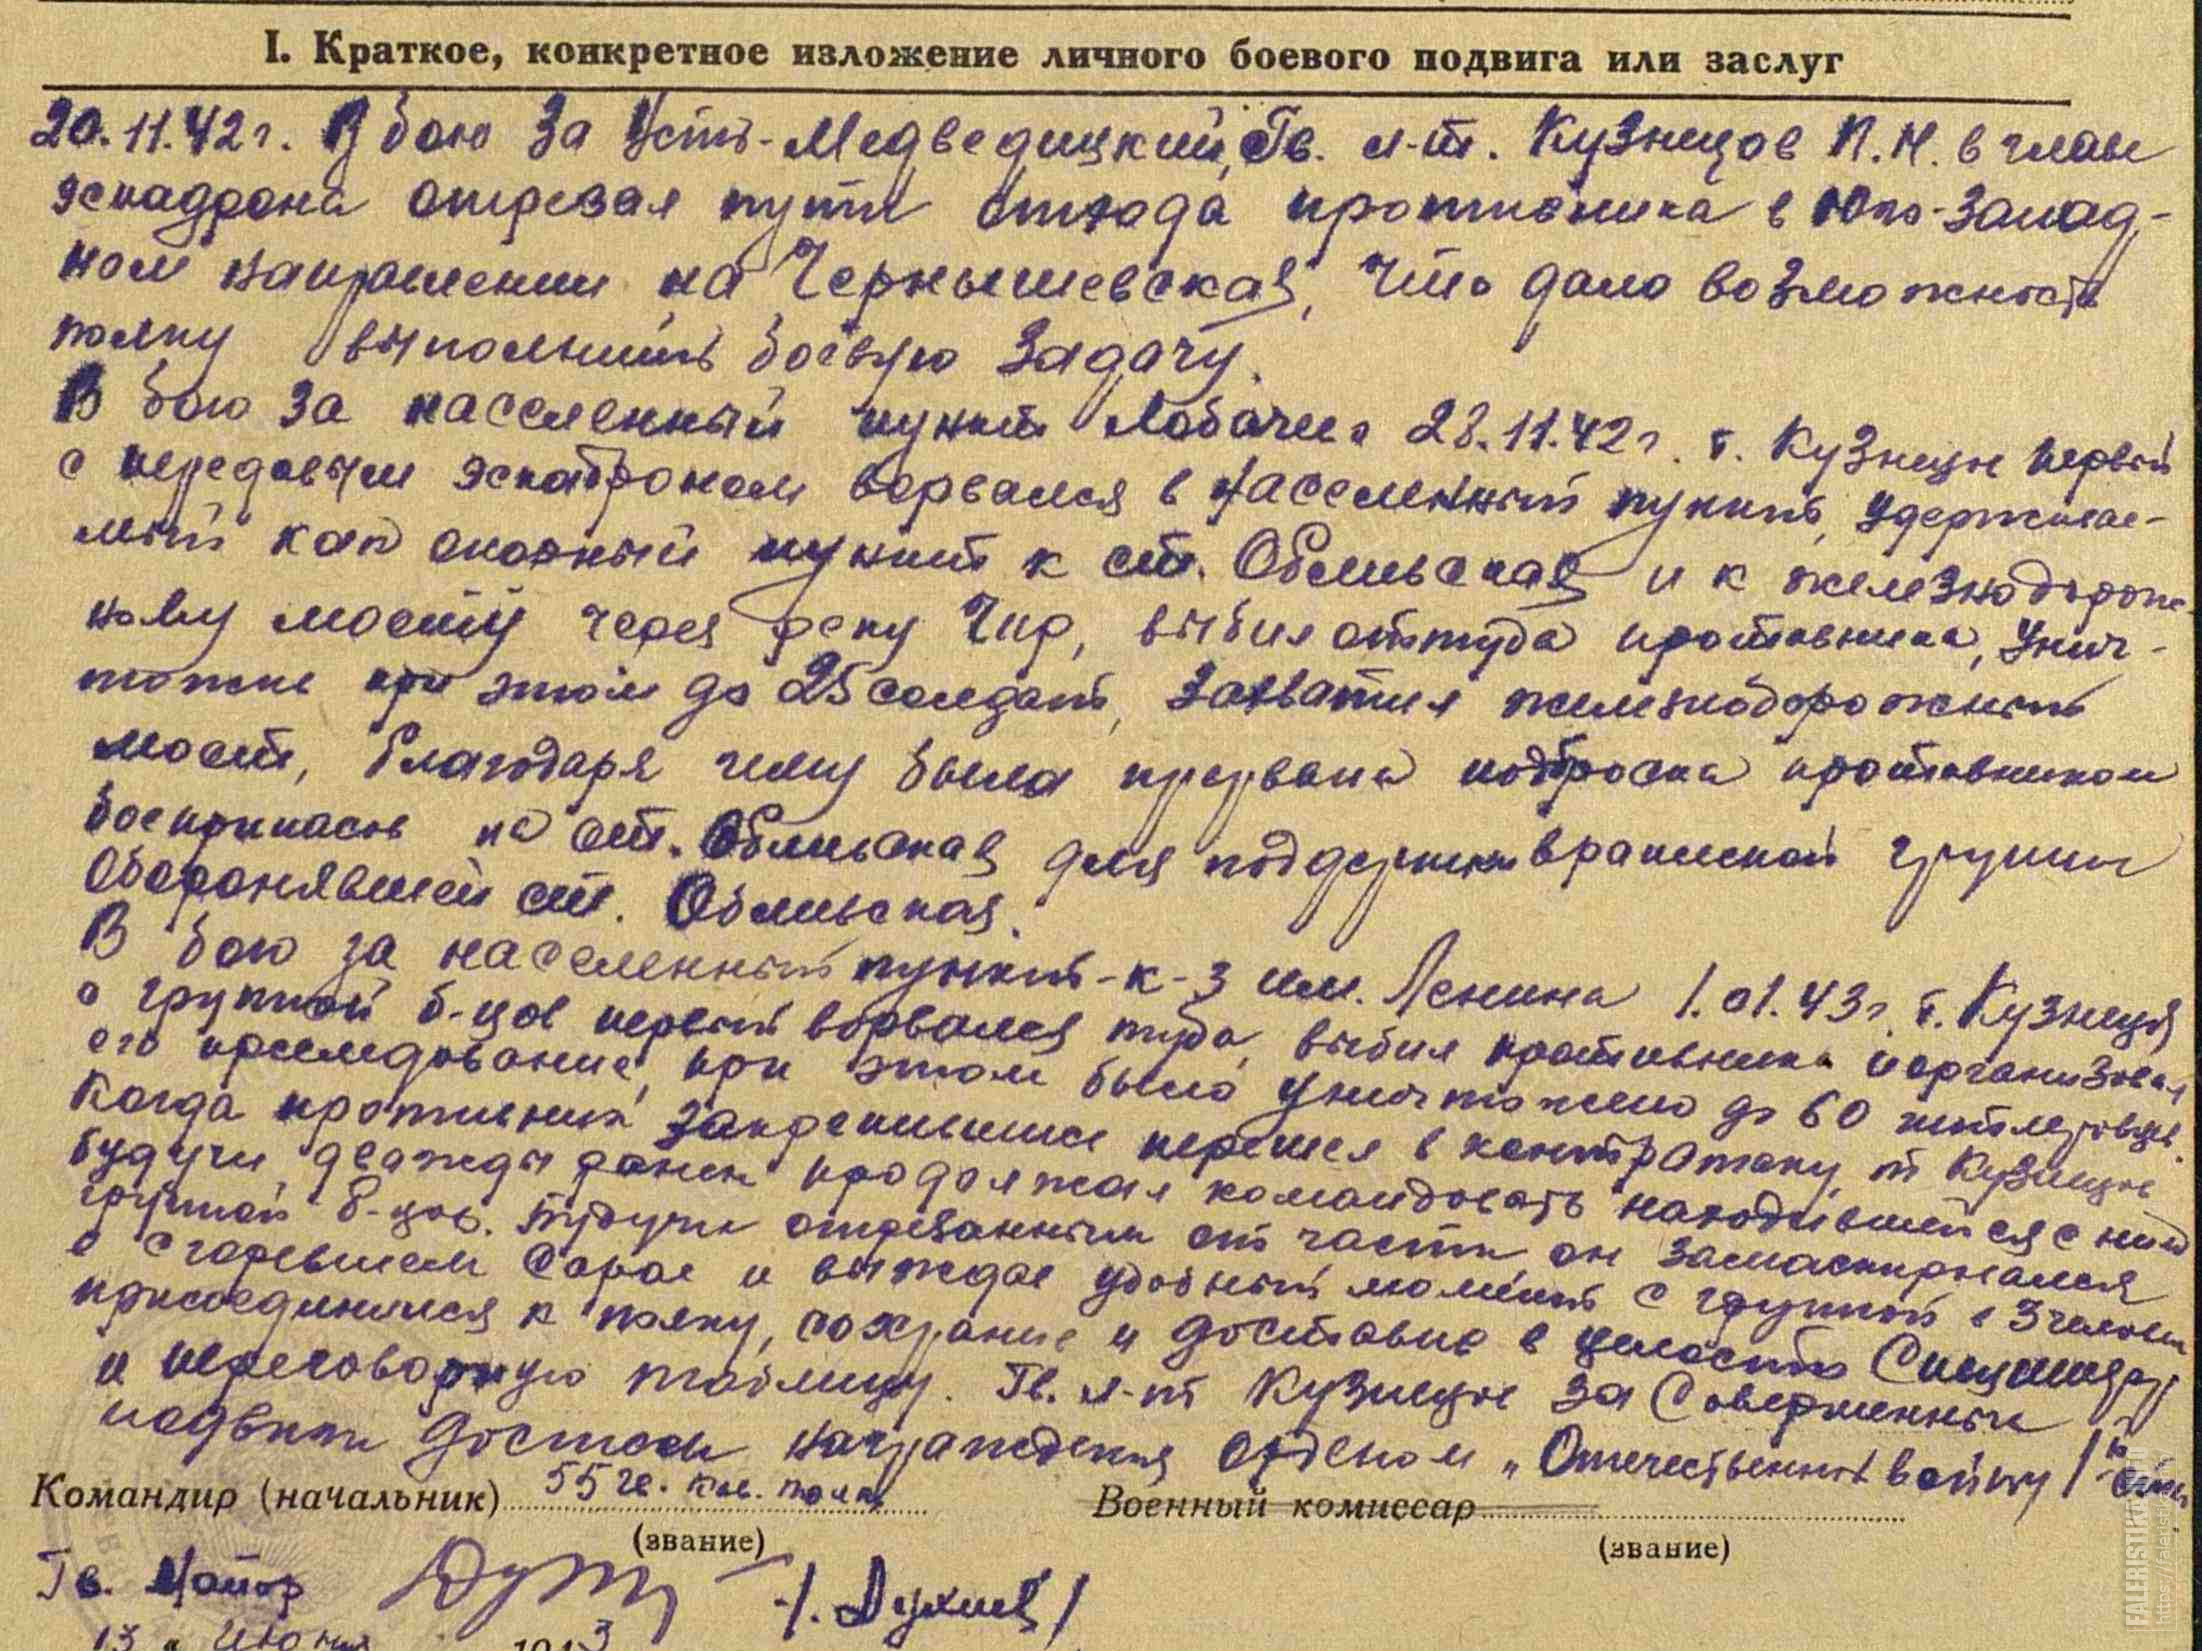 I. Краткое, конкретное изложение личного боевого подвига или заслуг
20.11.42 г. В бою за Усть-Медведицкий, Гв. л-т. Кузнецов П.Н. в главе
эскадрона отрезал пути отхода противника в Юго-запад-
ном направлении на Чернышевская, что дало возможность
полку выполнить боевую задачу.
В бою за населенный пункт Лобачев 28.11.42 г. т. Кузнецов первый
с передовым эскадроном ворвался в населенный пункт, удерживае-
мый как опорный пункт к ст. Обливская и к железнодорож-
ному мосту через реку Чир, выбил оттуда противника, унич-
тожив при этом до 25 солдат, захватил железнодорожный
мост, благодаря чему была прервана подброска противником
боеприпасов на ст. Обливская для поддержки вражеской группы
оборонявшей ст. Обливская.
В бою за населенный пункт-к-з им. Ленина 1.01.43 г. т. Кузнецов
с группой б-цов первый ворвался туда, выбил противника и организовал
его преследование, при этом было уничтожено до 60 гитлеровцев.
Когда противник закрепившись перешел в контратаку, т Кузнецов
будучи дважды ранен продолжал командовать находившейся с ним
группой б-цов. Будучи отрезанным от части, он замаскировался
в сгоревшем сарае и выждав удобный момент с группой в 3 человека
присоединился к полку, сохранив и доставив в целости
и переговорную таблицу. Гв. л-т Кузнецов за совершенные
подвиги достоин награждения орденом „Отечественной войны I
Командир (начальник) 55 гв. кав. полка
Военный комиссар
(звание)
(звание)
Гв. Майор
13 „ июня 1943
FALERISTIKA.INFO